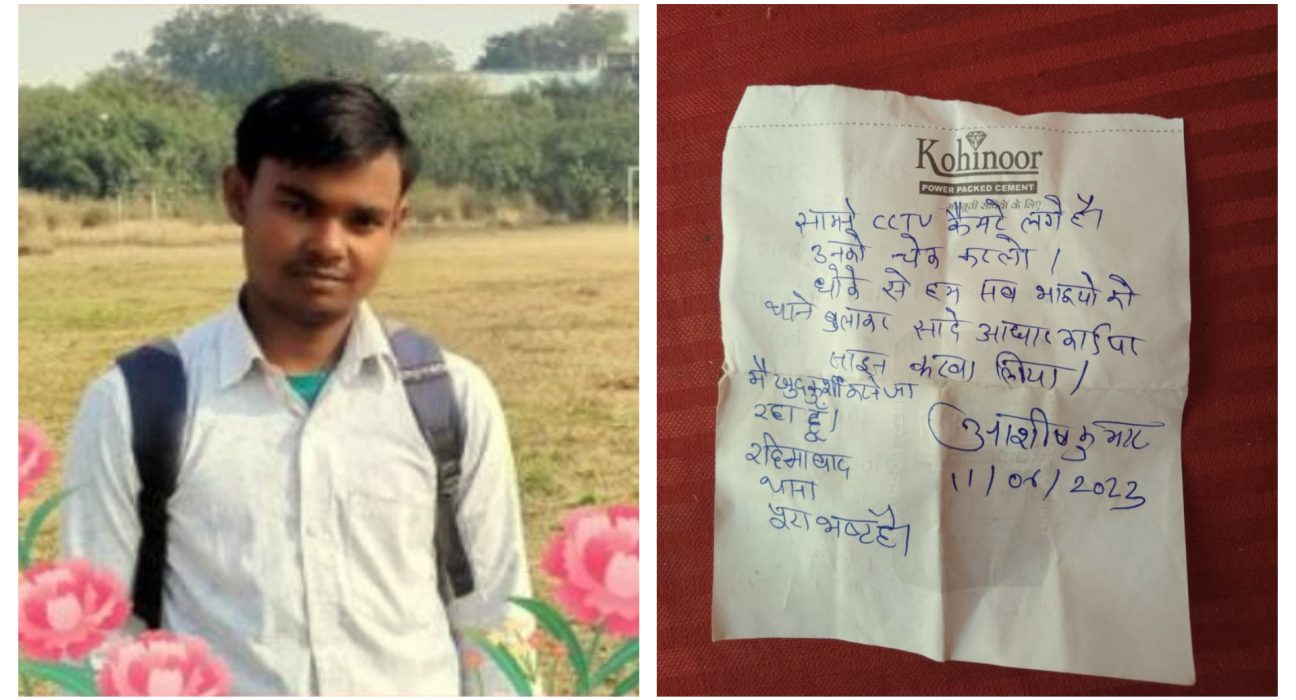 Kohinoor
POWER PACKED CEMENT
मजबूती सदियों के लिए
सामने CCTV कैमरे लगे हैं।
उनको चेक करलो।
धोके से हम सब भाइयो को
थाने बुलाकर सादे आधार कार्ड पर
साइन करवा लिया।
मै खुदकुशी करने जा
रहा हूँ।
रहिमाबाद
थाना
पूरा भ्रष्ट है।
आशीष कुमार
11/06/2023